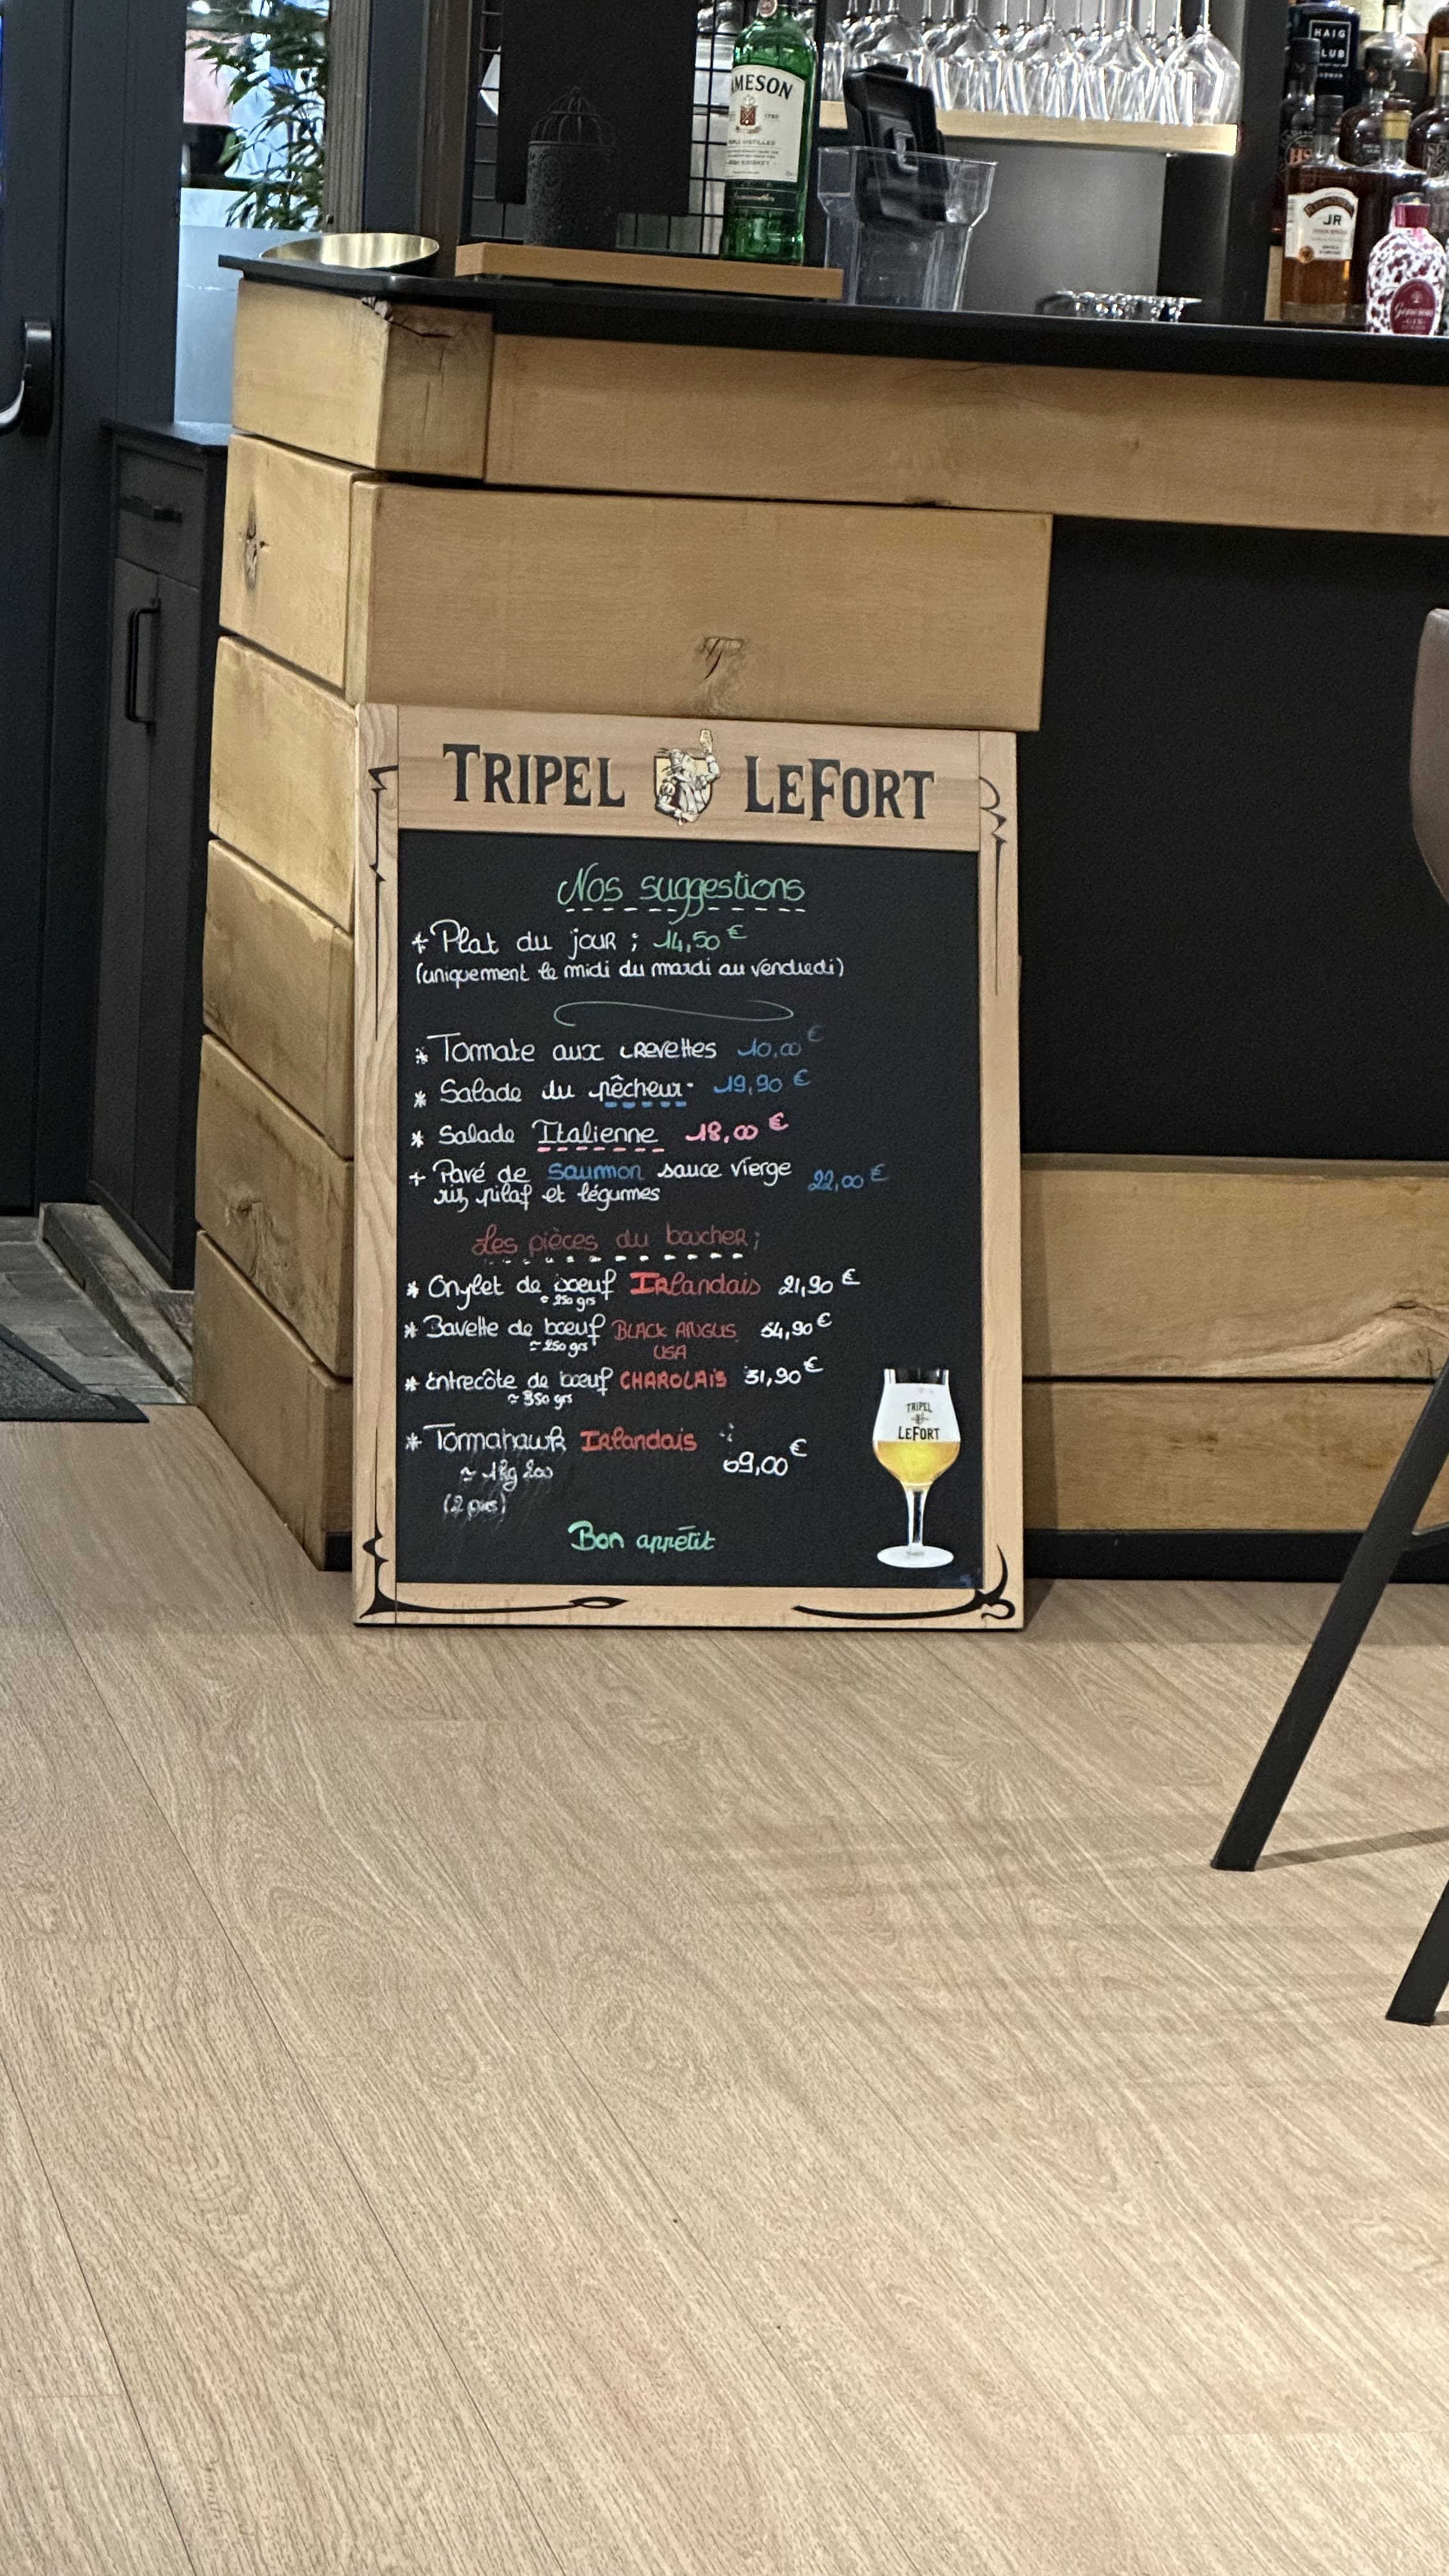 JAMESON
TRIPLE DISTILLED
IRISH WHISKEY
HAIG
CLUB
JR
TRIPEL LEFORT
Nos suggestions
+ Plat du jour ; 14,50 €
(uniquement le midi du mardi au vendredi)
* Tomate aux crevettes 10,00 €
* Salade du pêcheur 19,90 €
* Salade Italienne 18,00 €
+ Pavé de saumon sauce vierge 22,00 €
riz pilaf et légumes
Les pièces du boucher ;
* Onglet de boeuf IRlandais 21,90 €
≈ 250 grs
* Bavette de boeuf BLACK ANGUS 34,90 €
≈ 250 grs USA
* Entrecôte de boeuf CHAROLAIS 31,90 €
≈ 350 grs
* Tomahawk IRlandais : 69,00 €
≈ 1kg 200
(2 pers)
Bon appétit
TRIPEL
LEFORT